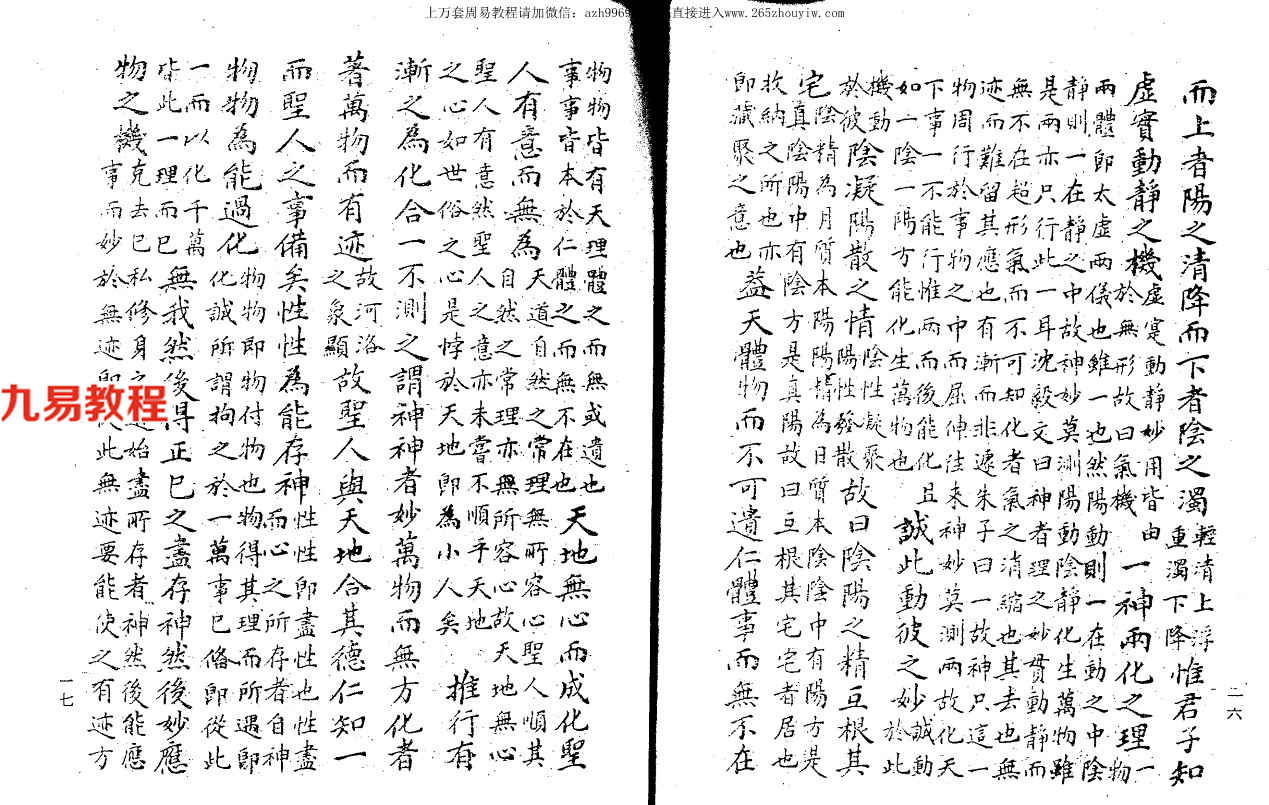 上万套周易教程请加微信：azh9969 直接进入www.265zhouyiw.com
而上者陽之清降而下者陰之濁輕清上浮重濁下降惟君子知
虛實動靜之機虛寔動靜妙用皆由於無形故曰氣機一神兩化之理一物
兩體即太虛兩儀也雖一也然陽動則一在動之中陰
靜則一在靜之中故神妙莫測陽動陰靜化生萬物雖
是兩亦只行此一耳沈毅文曰神者理之妙貫動靜而
無不在超形氣而不可知化者氣之消縮也其去也無
迹而難留其應也有漸而非遽朱子曰一故神只這一
物周行於事物之中而屈伸往來神妙莫測兩故化天
下事一不能行惟兩而後能化且
如一陰一陽方能化生萬物也誠此動彼之妙誠動於此
機動於彼陰凝陽散之情陰性凝聚陽性發散故曰陰陽之精互根其
宅陰精為月質本陽陽精為日質本陰陰中有陽方是
真陰陽中有陰方是真陽故曰互根其宅宅者居也
收納之所也亦
即藏聚之意也蓋天體物而不可遺仁體事而無不在
一六
物物皆有天理體之而無或遺也
事事皆本於仁體之而無不在也天地無心而成化聖
人有意而無為天道自然之常理無所容心聖人順其
自然之常理亦無所容心故天地無心
聖人有意然聖人之意亦未嘗不順乎天地
之心如世俗之心是悖於天地即為小人矣推行有
漸之為化合一不測之謂神神者妙萬物而無方化者
著萬物而有迹故河洛之象顯故聖人與天地合其德仁知一
而聖人之事備矣性性為能存神性性即盡性也性盡而心之所存者自神
物物為能過化物物即物付物也物得其理而所遇即
化誠所謂拘之於一萬事已俻即從此
一而以化千萬
皆此一理而已無我然後得正巳之盡存神然後妙應
物之機克去已私修身之始盡所存者神然後能應
事而妙於無迹即此無迹要能使之有迹方
一七
九易教程